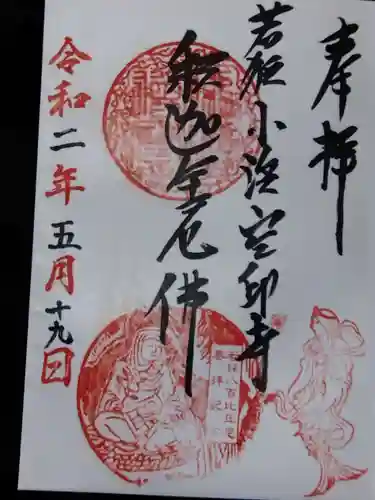 奉拝
若狭小浜空印寺
釈迦牟尼佛
令和二年五月十九日
八百比丘尼